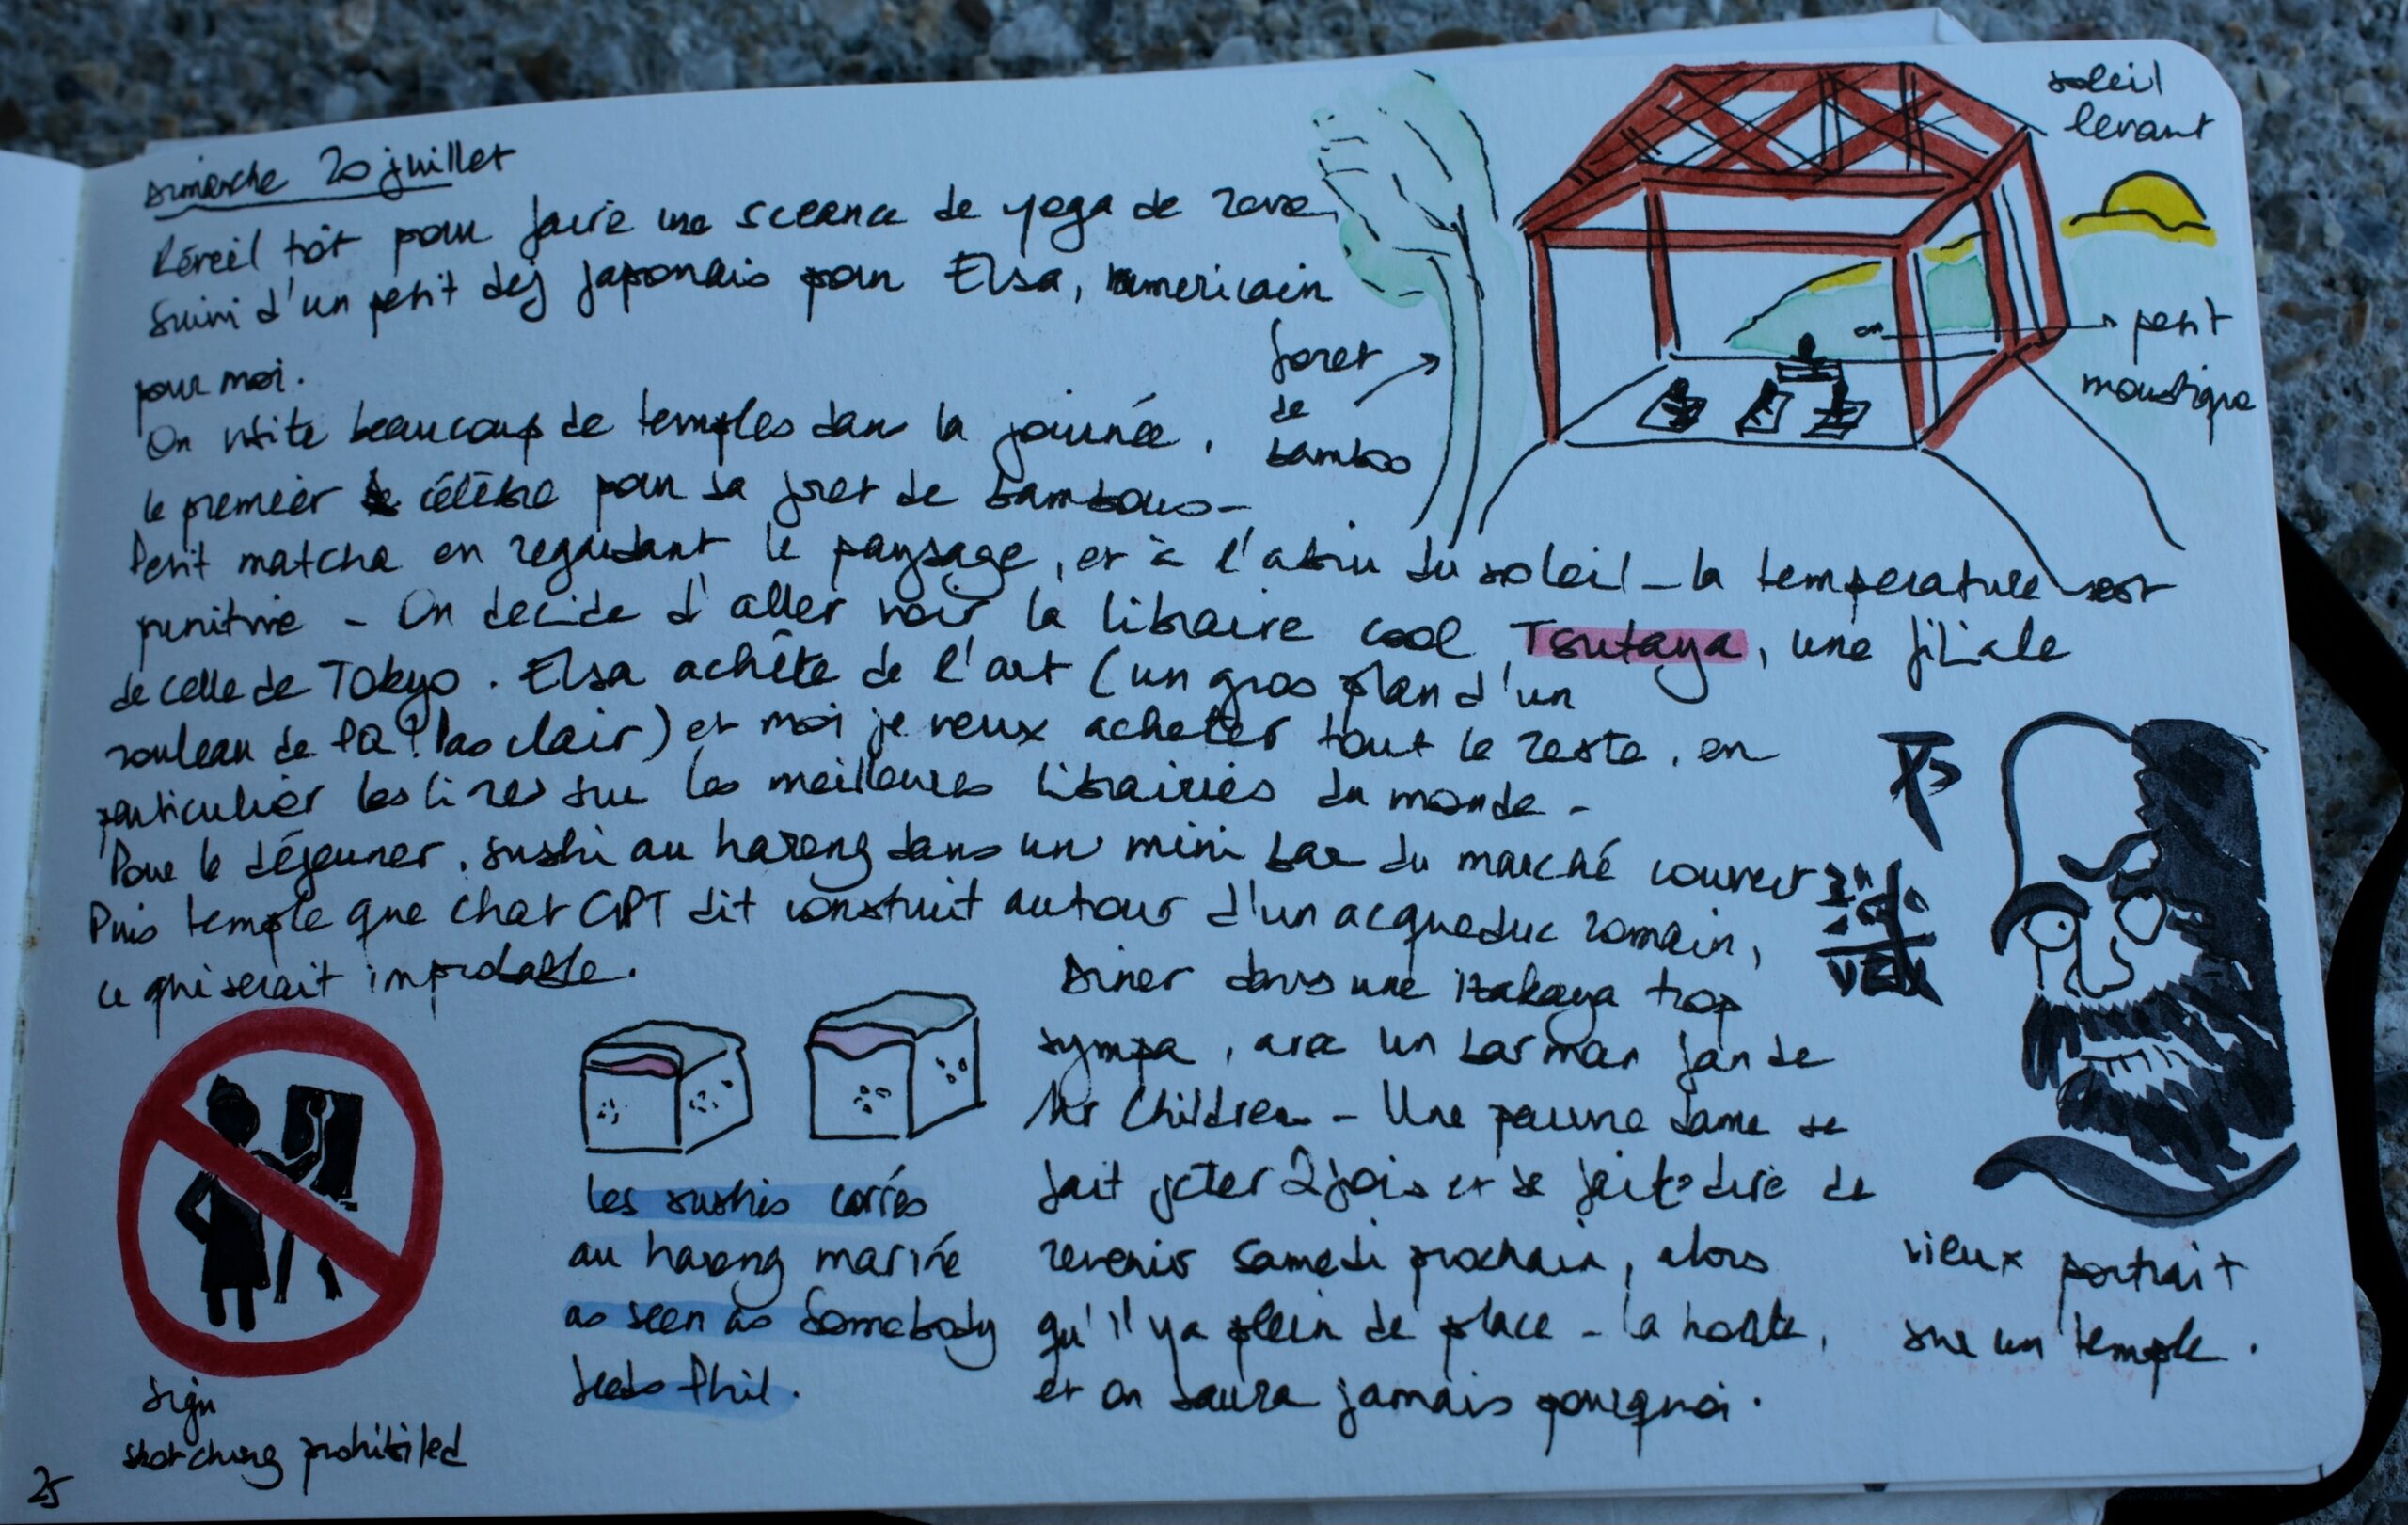 Dimanche 20 juillet
Réveil tôt pour faire une sceance de yoga de reve
suivi d'un petit dej japonais pour Elsa, americain
pour moi.
On visite beaucoup de temples dans la journée,
le premier célèbre pour sa foret de bambous -
Petit matcha en regardant le paysage, et à l'abri du soleil - la temperature est
punitive - On decide d'aller voir la libraire cool Tsutaya, une filiale
de celle de Tokyo. Elsa achète de l'art (un gros plan d'un
rouleau de PQ? Pas clair) et moi je veux acheter tout le reste, en
particulier les livres sur les meilleures librairies du monde -
Pour le déjeuner, sushi au hareng dans un mini bar du marché couvert
Puis temple que chat GPT dit construit autour d'un acqueduc romain,
ce qui serait improbable.
Diner dans une izakaya trop
sympa, avec un barman fan de
Mr Children - Une pauvre dame se
fait jeter 2 fois et se fait dire de
revenir samedi prochain, alors
qu'il y a plein de place - la honte,
et on saura jamais pourquoi.
soleil
levant
petit
moustique
foret
de
bamboo
sign
sketching prohibited
les sushis carrés
au hareng mariné
as seen as Somebody
feeds Phil.
vieux portrait
sur un temple.
25